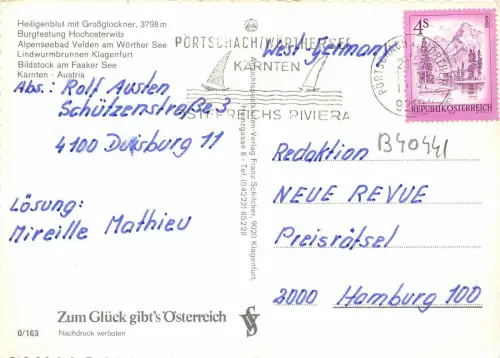 Heiligenblut mit Großglockner, 3798 m
Burgfestung Hochosterwitz
Alpenseebad Velden am Wörther See
Lindwurmbrunnen Klagenfurt
Bildstock am Faaker See
Kärnten - Austria
Abs.: Rolf Austen
Schützenstraße 3
4100 Duisburg 11
Lösung:
Mireille Mathieu
Zum Glück gibt's Österreich
0/163
Nachdruck verboten
PÖRTSCHACH/WÖRTHERSEE
KÄRNTEN
ÖSTERREICHS RIVIERA
Ansichtskarten-Verlag Franz Schilcher, 9020 Klagenfurt,
gasse 8 - Tel. (04222) 85228
West Germany
4S
REPUBLIK ÖSTERREICH
B40441
Redaktion
NEUE REVUE
Preisrätsel
2000 Hamburg 100